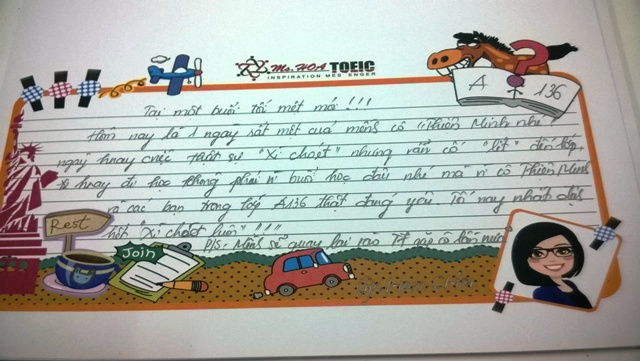 Ms. HOA TOEIC
INSPIRATION MESSENGER
A 136
Tại một buổi tối mệt mỏi !!!
Hôm nay là 1 ngày rất mệt của mềnh cô "Thiên Minh" nhé!
ngày hnay thật sự "Xì choét" nhưng vẫn cố "lết" đến lớp.
hnay đi học không phải vì buổi học đâu nhé mà vì cô Thiên Minh
và các bạn trong lớp A136 thật đáng yêu. Tối nay nhất
hết "Xì choét luôn" !!!
P/s: Mềnh sẽ quay lại gặp cô lần nữa
Rest
Join